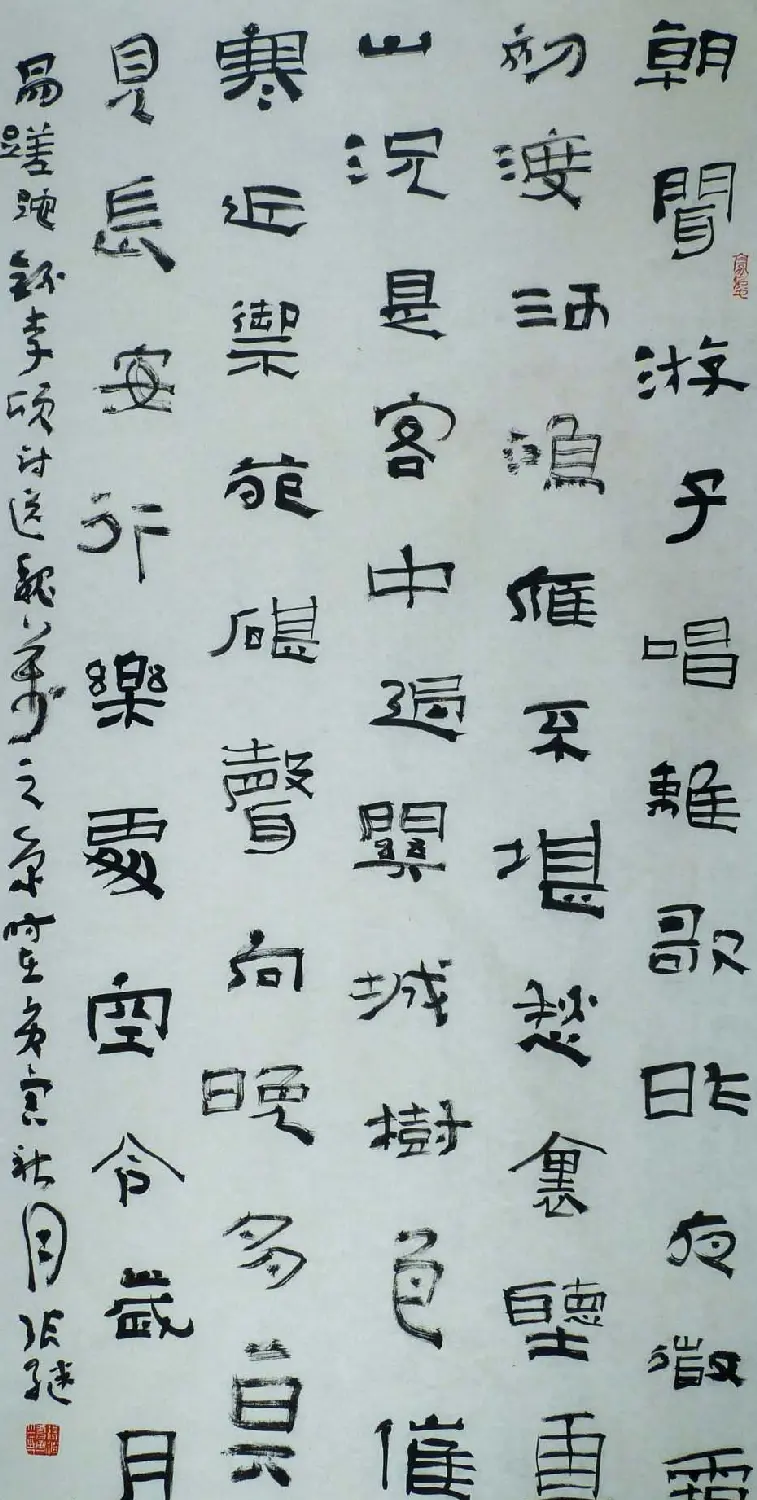 朝聞游子唱離歌昨夜微霜
初渡河鴻雁不堪愁裏聽雲
山況是客中過關城樹色催
寒近禦苑碪聲向晚多莫
見長安行樂處空令歲月
易蹉跎李頎詩送魏萬之京時在庚寅秋月張繼